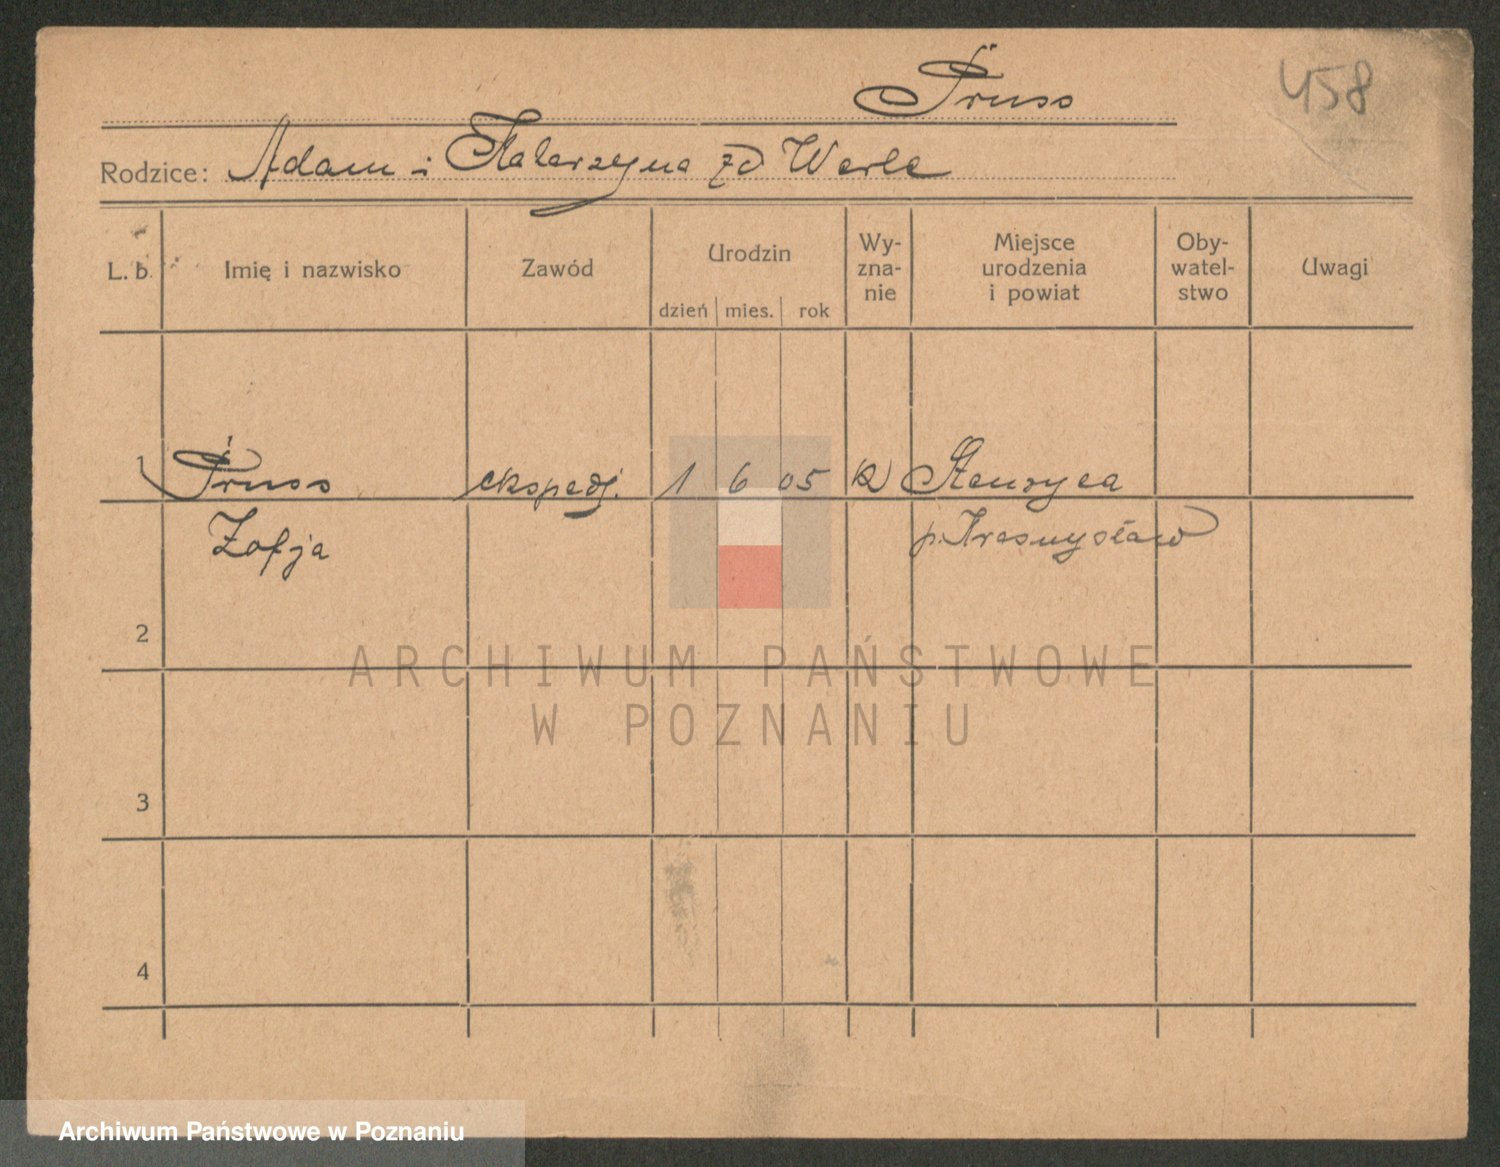 Pruss
458
Rodzice: Adam i Katarzyna zd Werle
L. b. Imię i nazwisko Zawód Urodzin dzień mies. rok Wy-zna-nie Miejsce urodzenia i powiat Oby-watel-stwo Uwagi
1 Pruss ekspedj. 1 6 05 k Stenzyca
Zofja p. Krasnystaw
2
3
4
ARCHIWUM PAŃSTWOWE
W POZNANIU
Archiwum Państwowe w Poznaniu